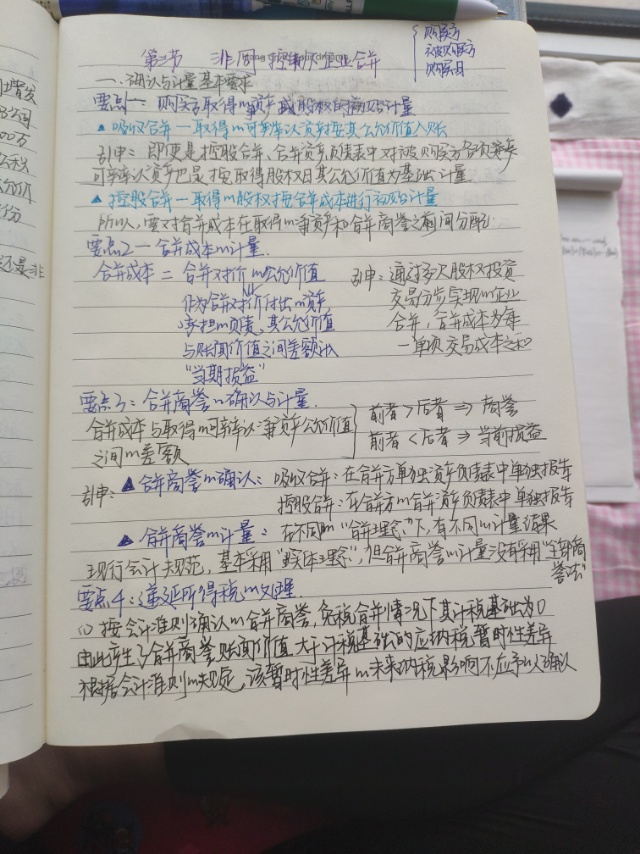 第三节 非同一控制下的企业合并
购买方
被购买方
购买日
一、确认与计量基本要求
要点一 购买方取得的资产或股权的确认与计量
▲吸收合并一取得的可辨认资产按其公允价值入账
引申: 即便是控股合并、合并资产负债表中对被购买方各项资产
可辨认资产也是按取得股权日其公允价值为基础计量
▲控股合并一取得的股权按合并成本进行初始计量
所以, 要对合并成本在取得的净资产和合并商誉之前间分配
要点2一合并成本的计量
合并成本 = 合并对价的公允价值
作为合并对价付出的资产,
承担的负债, 其公允价值
与账面价值之间差额计入
"当期损益"
引申: 通过多次股权投资
交易分步实现的企业
合并, 合并成本为每
一单项交易成本之和
要点3: 合并商誉的确认与计量
合并成本与取得的可辨认净资产公允价值
之间的差额
前者>后者 ⇒ 商誉
前者<后者 ⇒ 当期损益
引申: ▲合并商誉的确认: 吸收合并: 在合并方单独资产负债表中单独报告
控股合并: 在合并方的合并资产负债表中单独报告
▲合并商誉的计量: 在不同的"合并理念"下, 有不同的计量结果
现行会计规范, 基本采用"实体理念", 但合并商誉的计量没有采用"全部商
誉法"
要点4: 递延所得税的处理
(1) 按会计准则确认的合并商誉, 免税合并情况下其计税基础为0
由此产生了合并商誉账面价值大于计税基础的应纳税暂时性差异
根据会计准则的规定, 该暂时性差异的未来纳税影响不应予以确认